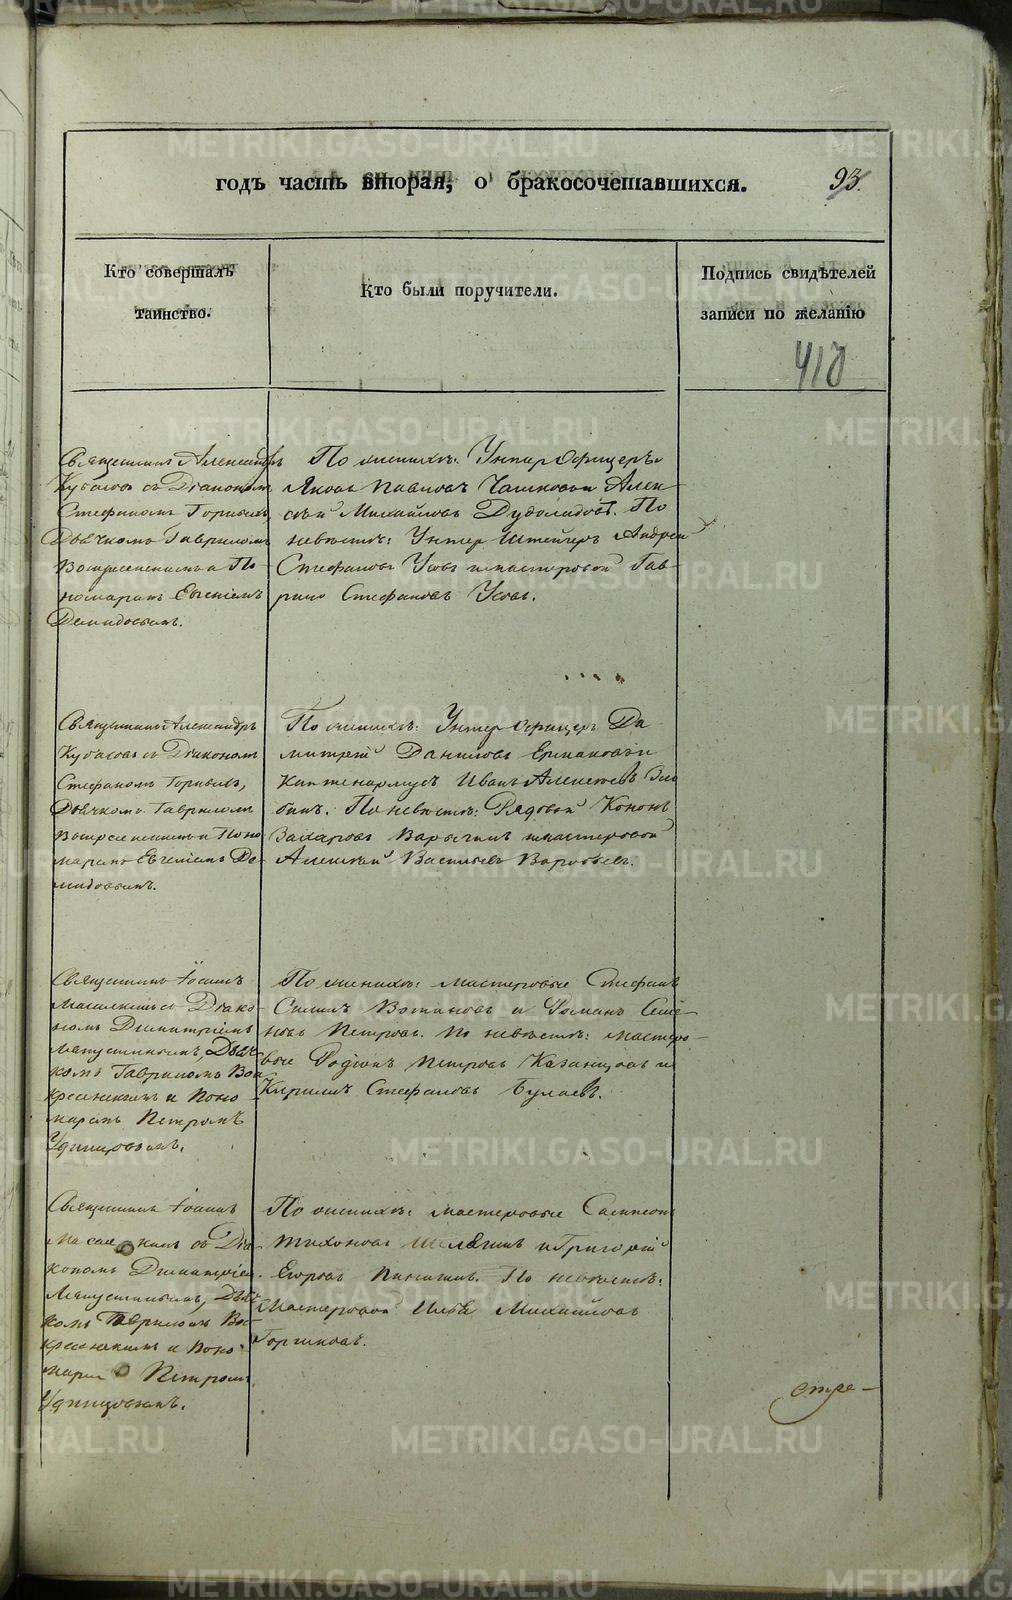 годъ часть вторая, о бракосочетавшихся.
93.
Кто совершалъ
таинство.
Кто были поручители.
Подпись свидѣтелей
записи по желанію
418
Священникъ Александръ
съ Діакономъ
Стефаномъ
Дьячкомъ Гавриломъ
Воскресенскимъ и По
номаремъ Евгеніемъ
Демидовымъ.
По женихѣ: Унтеръ Офицеръ
Яковъ Павловъ и Алек-
сѣй Михайловъ По
невѣстѣ: Унтер Штейгеръ Андрей
Стефановъ Усовъ и мастеровой Гав-
рило Стефановъ Усовъ.
Священникъ Александръ
съ Діакономъ
Стефаномъ
Дьячкомъ Гавриломъ
Воскресенскимъ и Поно
маремъ Евгеніемъ Де-
мидовымъ.
По женихѣ: Унтер Офицеръ Ди-
митрій Даниловъ Ермаковъ и
Каптенармусъ Иванъ Алексѣевъ
По невѣстѣ: Рядовой Кононъ
Захаровъ и мастеровой
Алексѣй Васильевъ Воробьевъ.
Священникъ Іоаннъ
съ Діако-
номъ Димитріемъ
Дьяч-
комъ Гавриломъ Вос
кресенскимъ и Поно
маремъ Петромъ
Удинцовымъ.
По женихѣ: мастеровые Стефанъ
Силинъ и Романъ Семе-
новъ Петровъ. По невѣстѣ: мастеро-
вые Родіонъ Петровъ Казанцовъ и
Кирилъ Стефановъ Булаевъ.
Священникъ Іоаннъ
съ Діа-
кономъ Димитріем
Дьяч-
комъ Гавриломъ Вос-
кресенскимъ и Поно-
маремъ Петромъ
Удинцовымъ.
По женихѣ: мастеровые
Тихоновъ и Григорій
Егоровъ По невѣстѣ:
Мастеровой Илья Михайловъ
стре-
METRIKI.GASO-URAL.RU